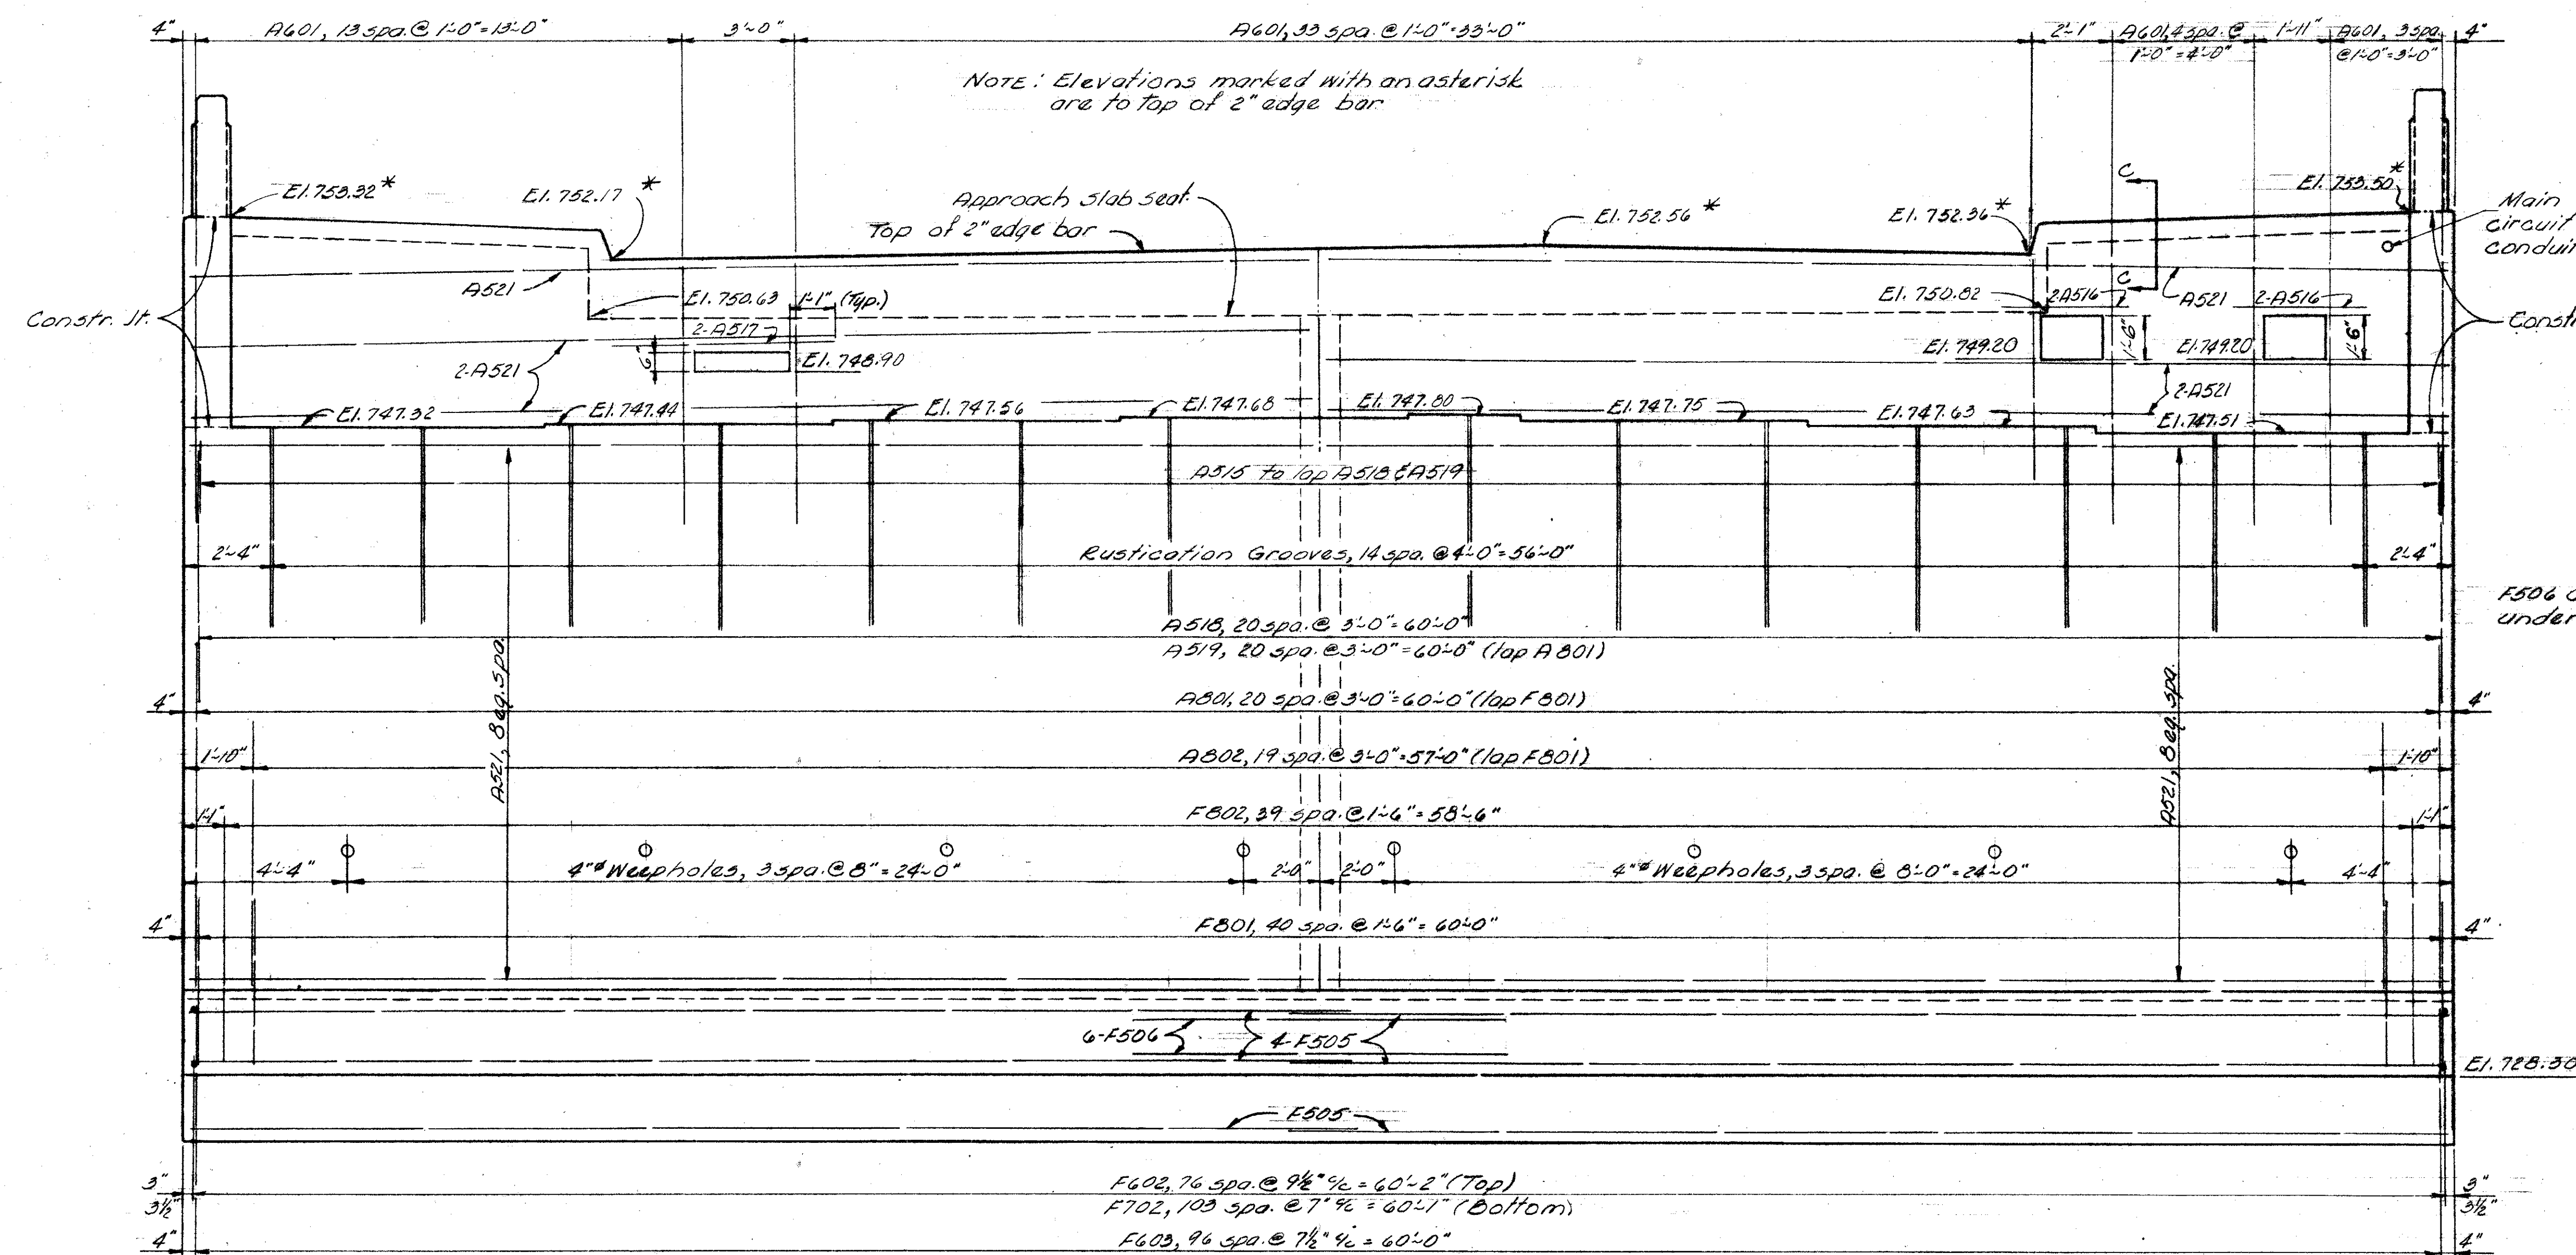 4" A601, 13 spa. @ 1'-0" = 13'-0" 3'-0" A601, 33 spa. @ 1'-0" = 33'-0" 2'-1" A601, 4 spa. @ 1'-11" A601, 3 spa. 4"
1'-0" = 4'-0" @ 1'-0" = 3'-0"
NOTE: Elevations marked with an asterisk
are to top of 2" edge bar
El. 753.32 *
El. 752.17 *
Approach slab seat
Top of 2" edge bar
El. 752.56 *
El. 752.36 *
C
El. 753.50 *
Main
circuit
conduit
A521
El. 750.63 1'-1" (Typ.)
El. 750.82 2-A516 C A521 2-A516
Constr. Jt.
2-A517
6" El. 748.90
El. 749.20 1'-6" El. 749.20 1'-6"
Const
2-A521
2-A521
El. 747.32 El. 747.44 El. 747.56 El. 747.68 El. 747.80 El. 747.75 El. 747.63 El. 747.51
A515 to lap A518 & A519
2'-4" Rustication Grooves, 14 spa. @ 4'-0" = 56'-0" 2'-4"
F506
under
A518, 20 spa. @ 3'-0" = 60'-0"
A519, 20 spa. @ 3'-0" = 60'-0" (lap A801)
A521, 8 eq. spa.
A521, 8 eq. spa.
4" A801, 20 spa. @ 3'-0" = 60'-0" (lap F801) 4"
1'-10" A802, 19 spa. @ 3'-0" = 57'-0" (lap F801) 1'-10"
1'-1" F802, 39 spa. @ 1'-6" = 58'-6" 1'-1"
4'-4" 4"ø Weepholes, 3 spa. @ 8" = 24'-0" 2'-0" 2'-0" 4"ø Weepholes, 3 spa. @ 8'-0" = 24'-0" 4'-4"
4" F801, 40 spa. @ 1'-6" = 60'-0" 4"
6-F506 4-F505
El. 728.50
F505
3" F602, 76 spa. @ 9½" c/c = 60'-2" (Top) 3"
3½" F702, 103 spa. @ 7" c/c = 60'-1" (Bottom) 3½"
4" F603, 96 spa. @ 7½" c/c = 60'-0" 4"